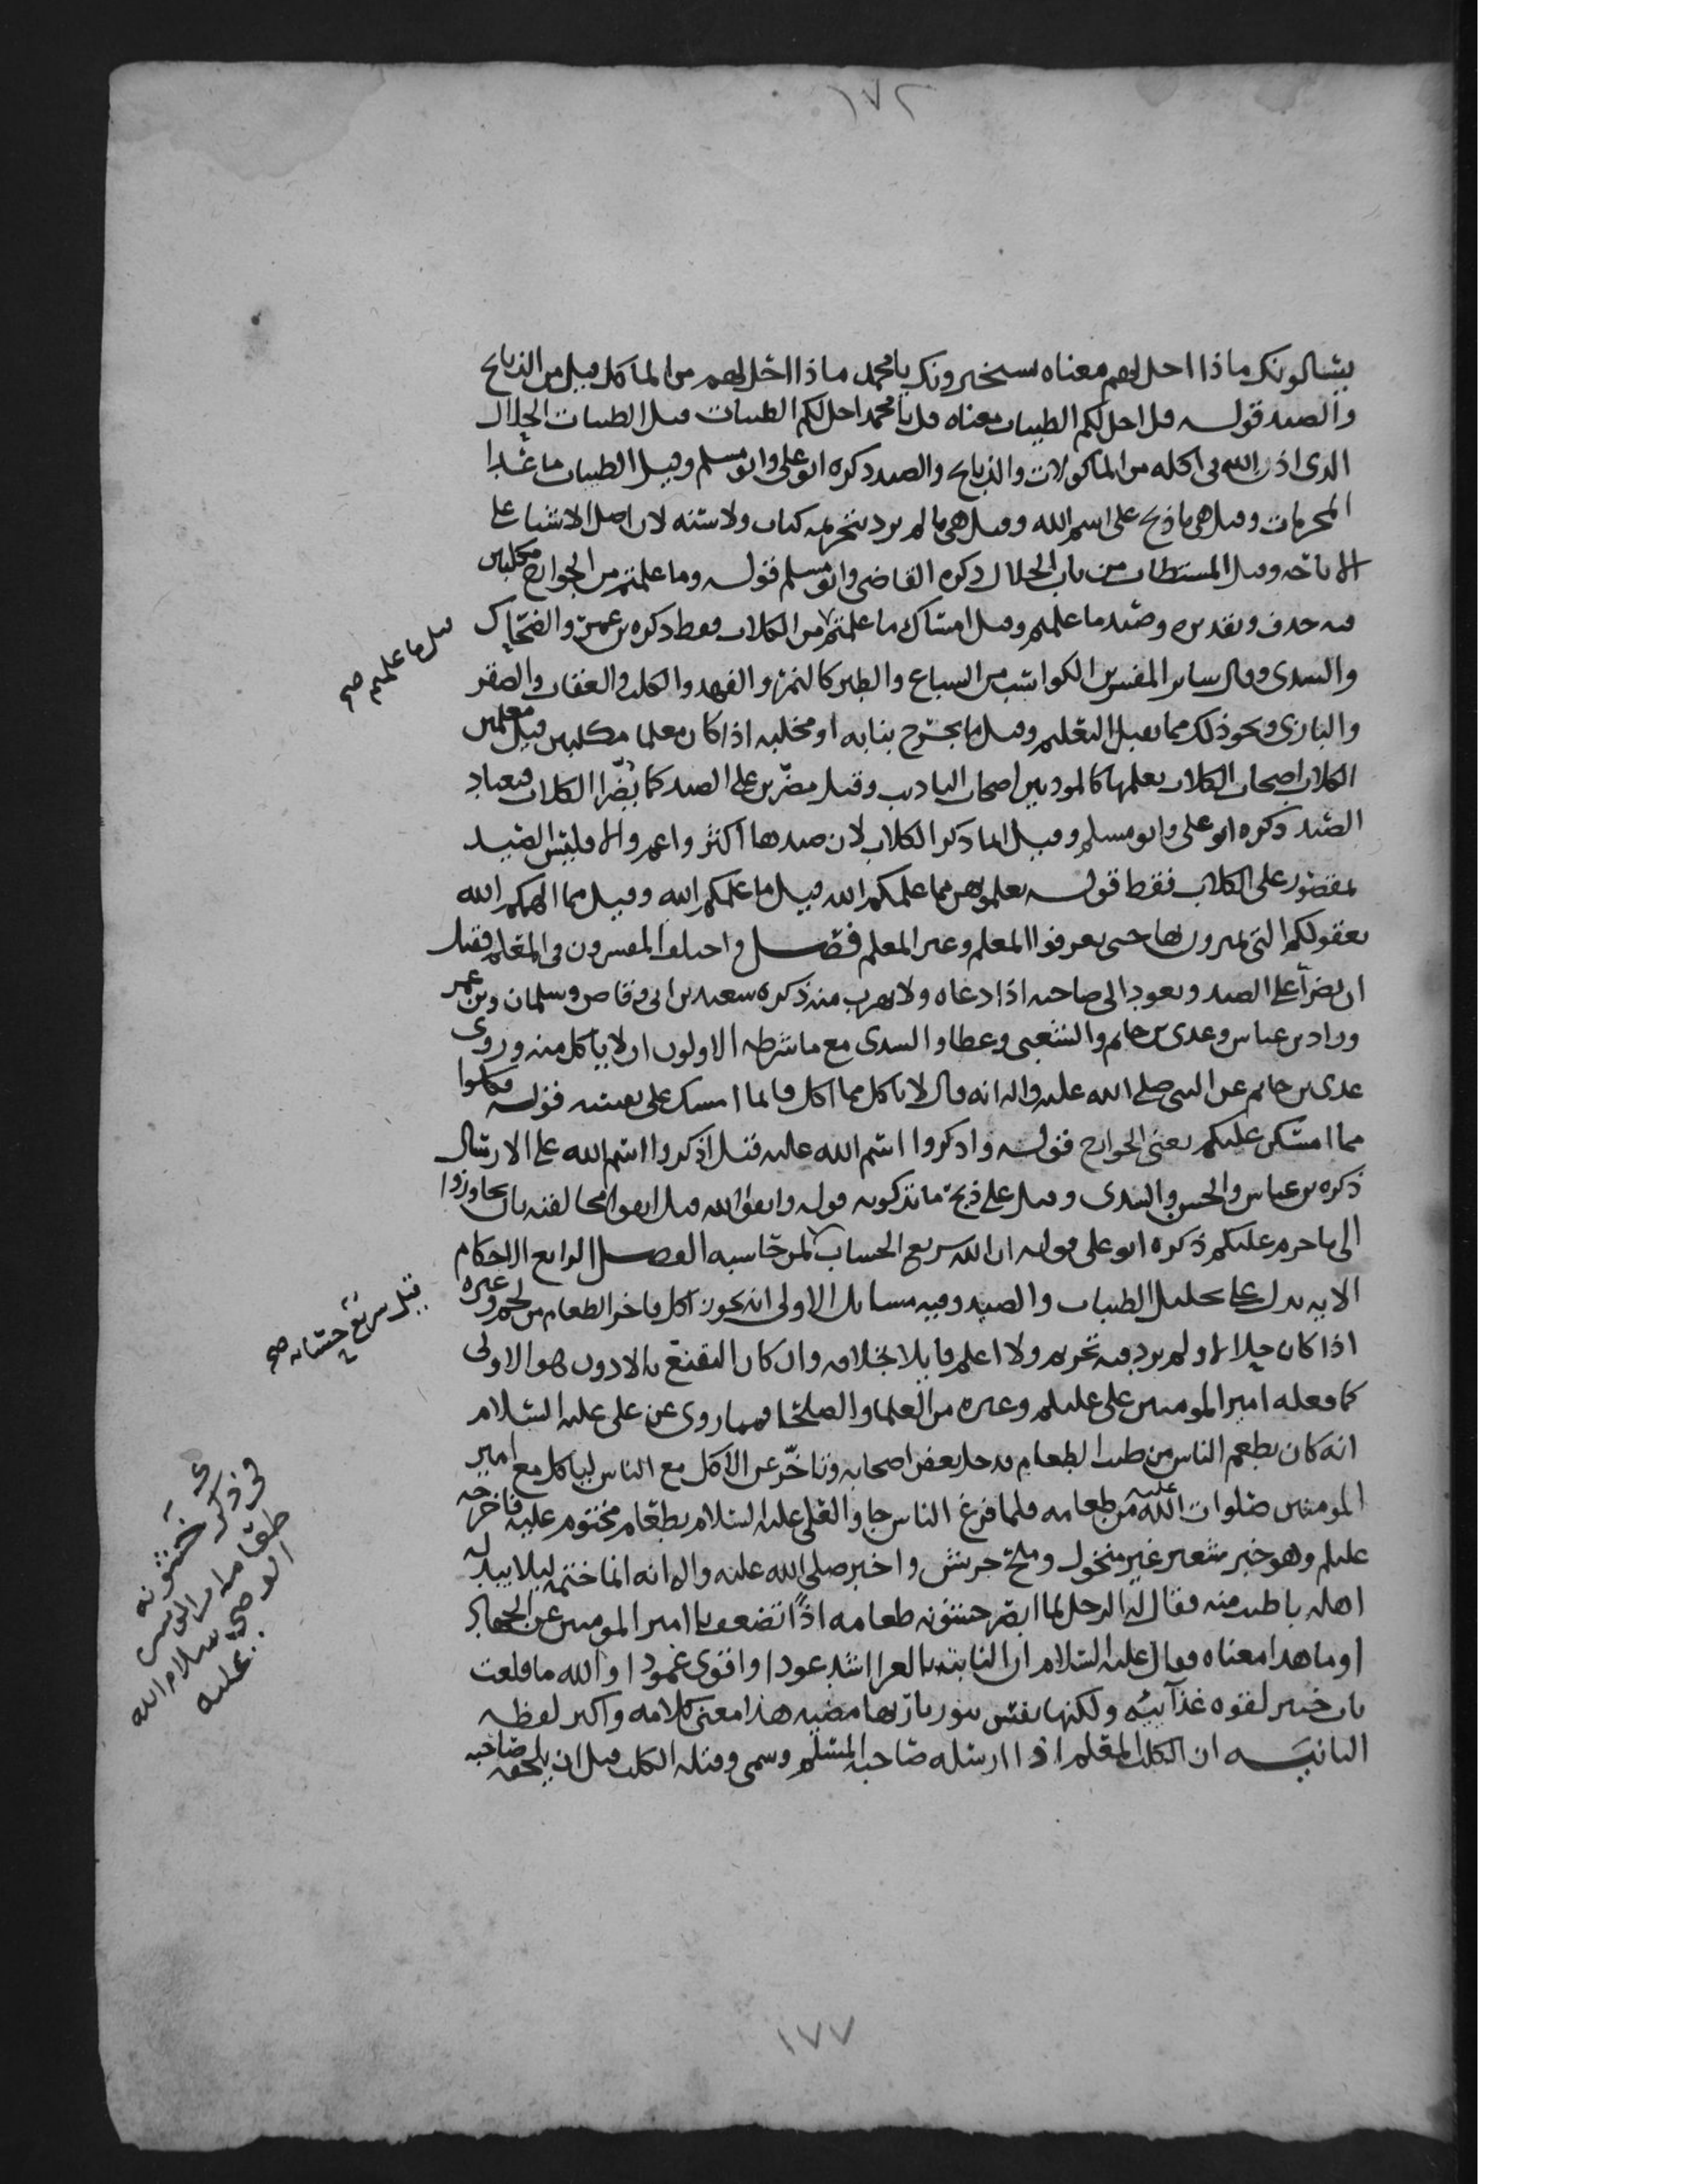 ١٧٢
يسالونك ماذا احل لهم معناه يستخبرونك يا محمد ماذا احل لهم من الماكل قيل من الذبايح
والصيد قوله قل احل لكم الطيبات معناه قل يا محمد احل لكم الطيبات قيل الطيبات الحلال
الذى اذن الله فى اكله من الماكولات والذبايح والصيد ذكره ابو على وابو مسلم وقيل الطيبات ما عدا
المحرمات وقيل هى ما ذبح على اسم الله وقيل هى ما لم يرد بتحريمه كتاب ولا سنه لان اصل الاشيا على
الاباحه وقيل المستطاب من باب الحلال ذكره القاضى وابو مسلم قوله وما علمتم من الجوارح مكلبين
فيه حذف وتقديره وصيد ما علمتم وقيل امساك ما علمتم من الكلاب فقط ذكره بن عمر والضحاك
قيل ما علمتم صح
والسدى وقال ساير المفسرين الكواسب من السباع والطير كالنمر والفهد والكلب والعقاب والصقر
والبازى ونحو ذلك مما يقبل التعليم وقيل ما يجرح بنابه او مخلبه اذا كان معلما مكلبين قيل معلمين
الكلاب اصحاب الكلاب يعلمها كالمودبين اصحاب التاديب وقيل مضرين على الصيد كما يضرا الكلاب فيعتاد
الصيد ذكره ابو على وابو مسلم وقيل انما ذكر الكلاب لان صيدها اكثر واعم والا فليس الصيد
بمقصور على الكلاب فقط قوله تعلمونهن مما علمكم الله قيل ما علمكم الله وقيل مما الهمكم الله
بعقولكم التى تميزون بها حتى تعرفوا المعلم وغير المعلم فصل واختلف المفسرون فى المعلم فقيل
ان يضرا على الصيد ويعود الى صاحبه اذا دعاه ولا يهرب منه ذكره سعد بن ابى وقاص وسلمان وبن عمر
وزاد بن عباس وعدى بن حاتم والشعبى وعطا والسدى مع ما شرطه الاولون ان لا ياكل منه وروى
عدى بن حاتم عن النبى صلى الله عليه واله انه قال لا تاكل مما اكل فانما امسك على نفسه قوله فكلوا
مما امسكن عليكم يعنى الجوارح قوله واذكروا اسم الله عليه قيل اذكروا اسم الله على الارسال
ذكره بن عباس والحسن والسدى وقيل على ذبح ما تذكونه قوله واتقوا الله قيل اتقوا مخالفته بان تجاوزوا
الى ما حرم عليكم ذكره ابو على قوله ان الله سريع الحساب لمن حاسبه الفصل الرابع الاحكام
قيل سريع حسابه صح
الايه تدل على تحليل الطيبات والصيد وفيه مسايل الاولى انه يجوز اكل فاخر الطعام من لحم وغيره
اذا كان حلالا ولم يرد فيه تحريم ولا اعلم قايلا بخلافه وان كان التقنع بالادون هو الاولى
كما فعله امير المومنين على عليلم وغيره من العلما والصلحا فيما روى عن على عليه السلام
انه كان يطعم الناس من طيب الطعام فدخل بعض اصحابه وتاخر عن الاكل مع الناس لياكل مع امير
المومنين صلوات الله عليه من طعامه فلما فرغ الناس جاوا لعلى عليه السلام بطعام مختوم عليه فاخرجه
عليلم وهو خبز شعير غير منخول وملح جريش واخبر صلى الله عليه واله انه انما ختمه ليلا يبدله
اهله باطيب منه فقال له الرجل لما ابصر خشونه طعامه اذا تضعف يا امير المومنين عن الجهاد
او ما هذا معناه فقال عليه السلام ان النابته بالعرا اشد عودا واقوى عمودا والله ما قلعت
باب خيبر لقوه غذائيه ولكنها نفس بنور باريها مضيه هذا معنى كلامه واكبر لفظه
الثانيه ان الكلب المعلم اذا ارسله صاحبه المسلم وسمى وقتله الكلب قبل ان يلحقه صاحبه
فى ذكر خشونه
طعام امير المومنين
الوصى سلام الله
عليه
١٧٧